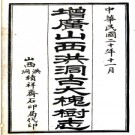 中華民國二十年十一月
增廣山西洪洞古大槐樹志
洪洞積祥齋石印局代印
山西